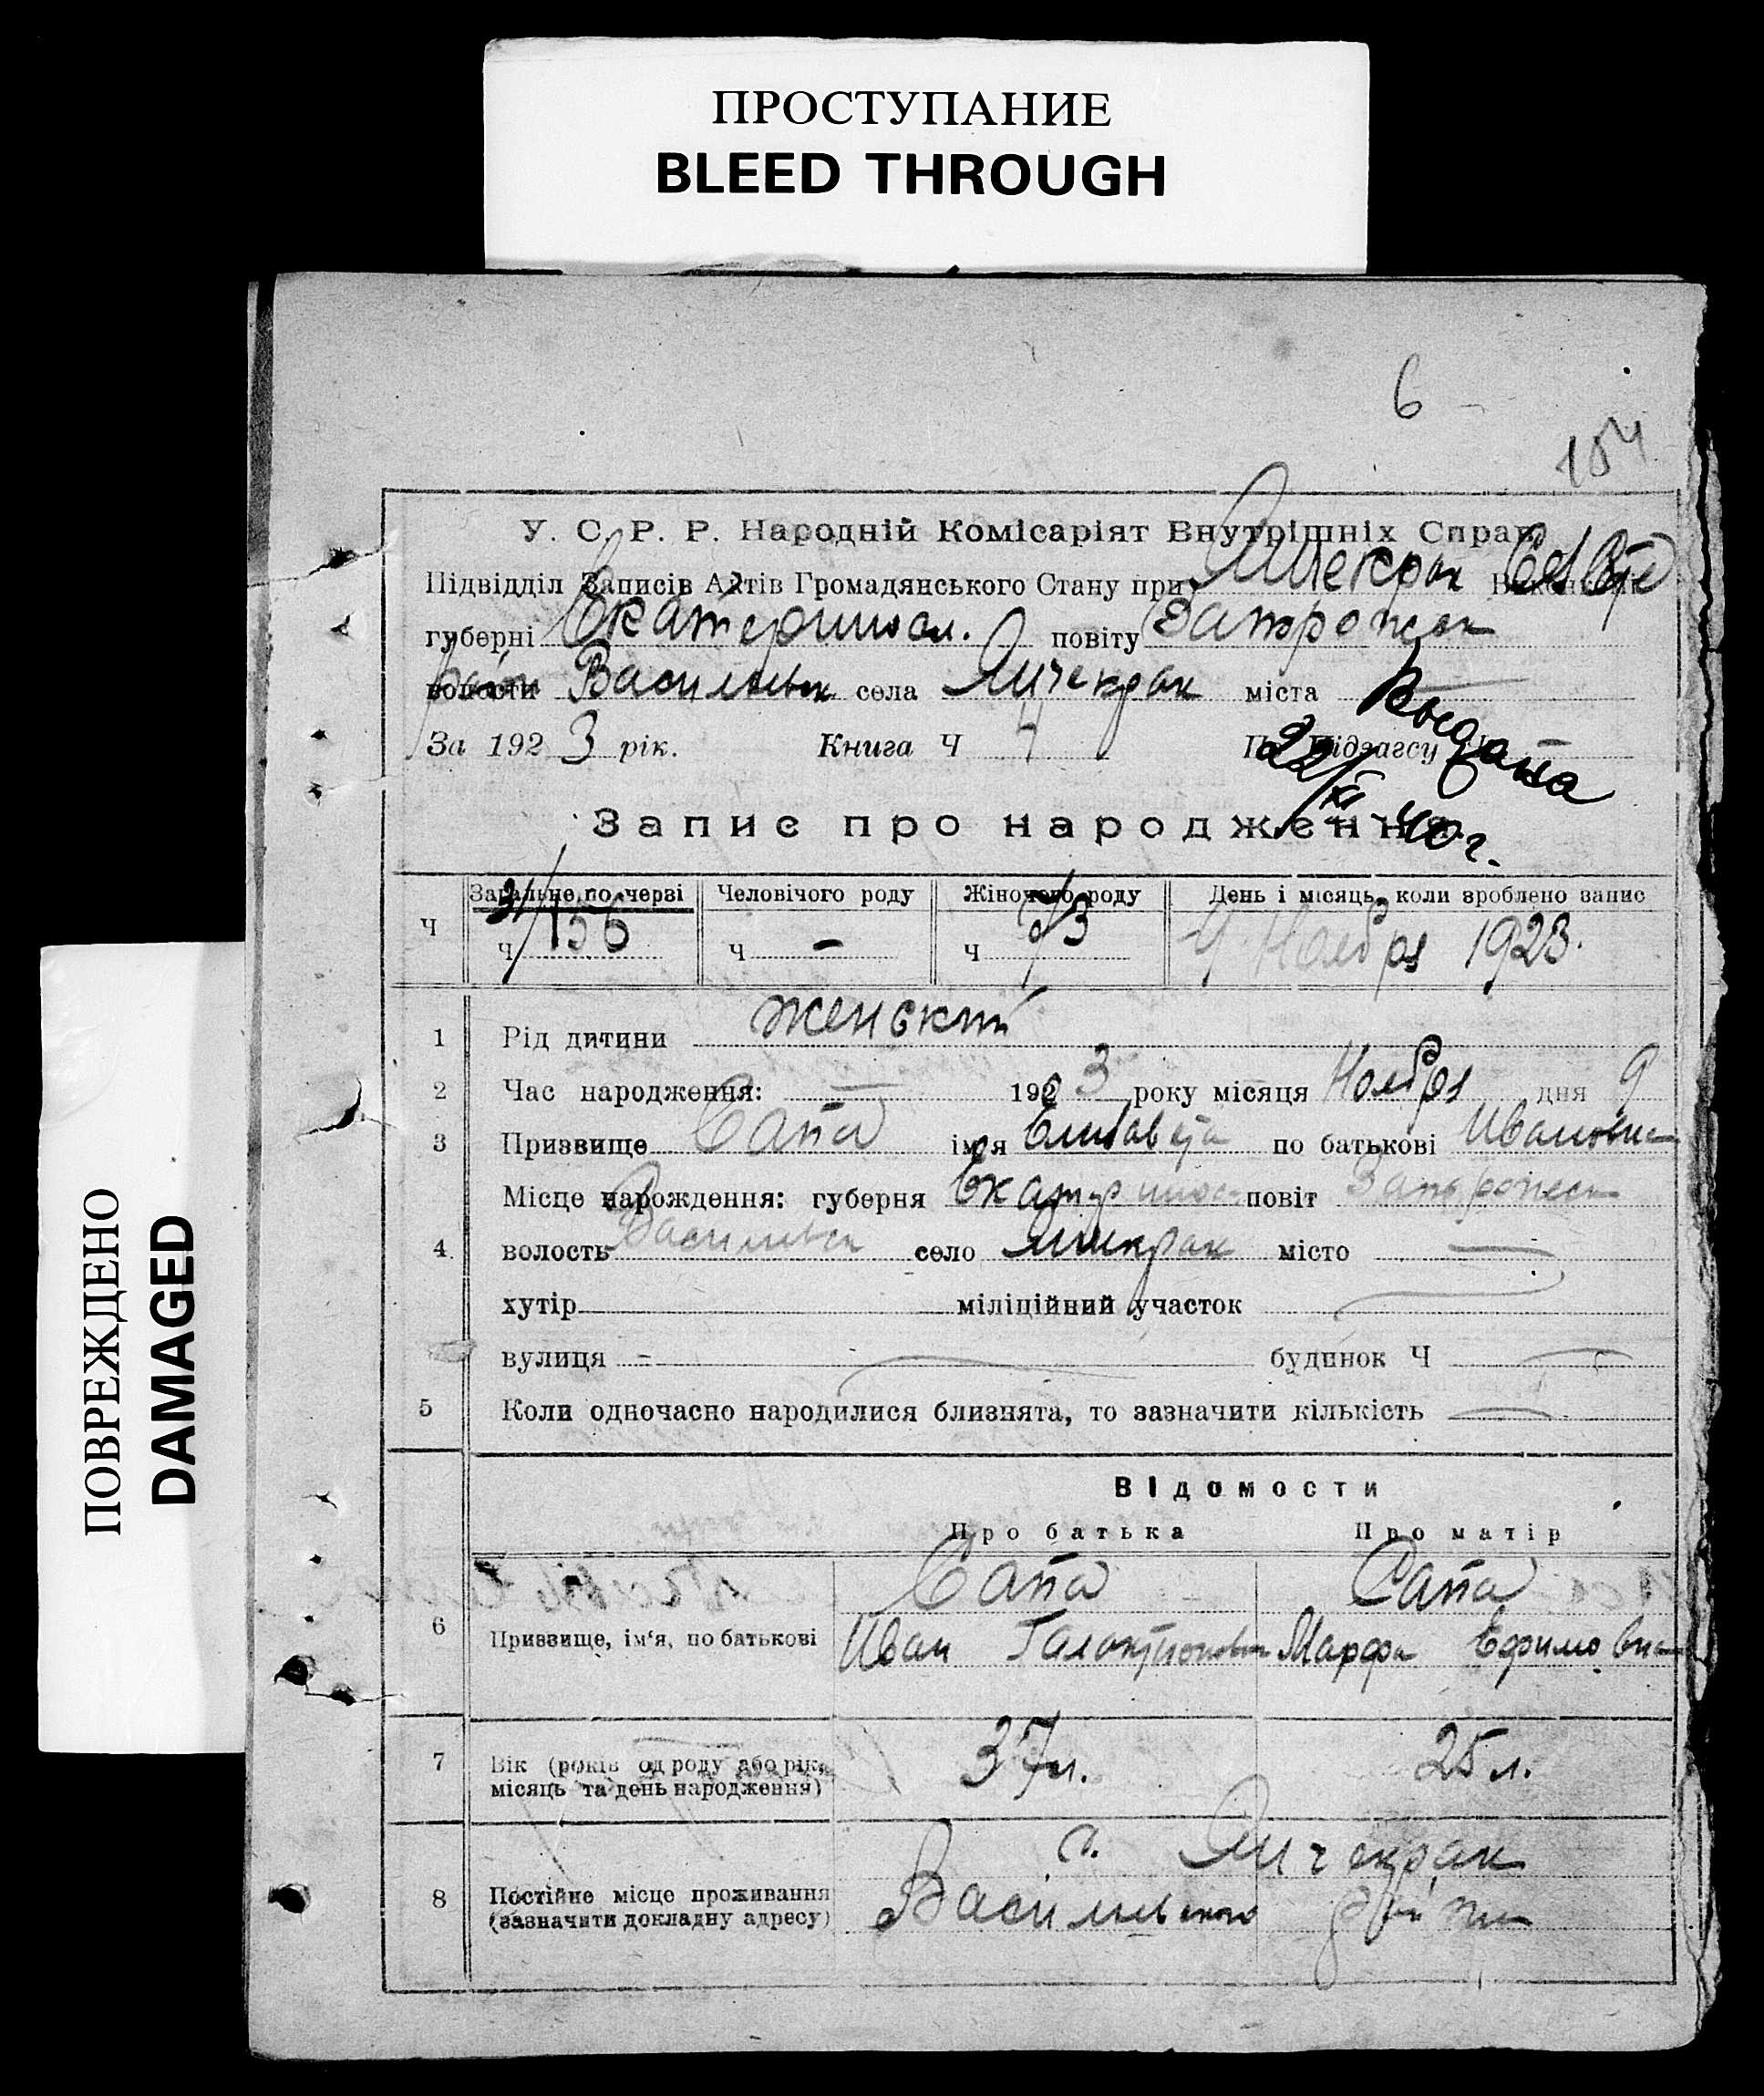 ПРОСТУПАНИЕ
BLEED THROUGH
ПОВРЕЖДЕНО
DAMAGED
6
154
У. С. Р. Р. Народній Комісаріят Внутрішніх Справ.
Підвідділ Записів Актів Громадянського Стану при Янчекрак
губерні Екатериносл. повіту Запорожск
волости район Васильевск села Янчекрак міста —
За 1923 рік. Книга Ч 4
Выдана
22/XI 40 г.
Запис про народження.
Загальне по черзі Человічого роду Жіночого роду День і місяць, коли зроблено запис
Ч Ч 31/156 Ч - Ч 73 Ноября 1923.
1 Рід дитини женский
2 Час народження: — 1923 року місяця Ноября дня 9
3 Призвище Сапа ім'я Елизавета по батькові Ивановна
Місце народження: губерня Екатеринос повіт Запорожск
4 волость Васильевск село Янчекрак місто —
хутір міліційний участок
вулиця - будинок Ч
5 Коли одночасно народилися близнята, то зазначити кількість —
Відомости
Про батька Про матір
Сапа Сапа
6 Призвище, ім'я, по батькові Иван Галактионович Марфа Ефимовна
7 Вік (років од роду або рік, 37 л. 25 л.
місяць та день народження)
с. Янчекрак
8 Постійне місце проживання Васильевского района
(зазначити докладну адресу)